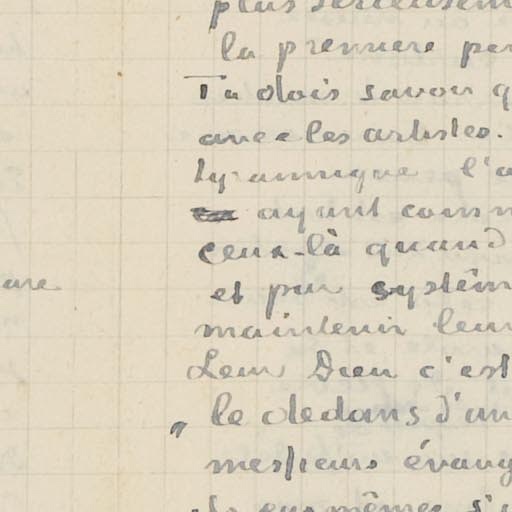 plus
la premiere per
Tu dois savoir q
avec les artistes.
tyrannique l'a
ayant comm
ceux-là quand
et par systèm
are
maintenir leur
Leur Dieu c'est
le dedans d'un
messieurs évang